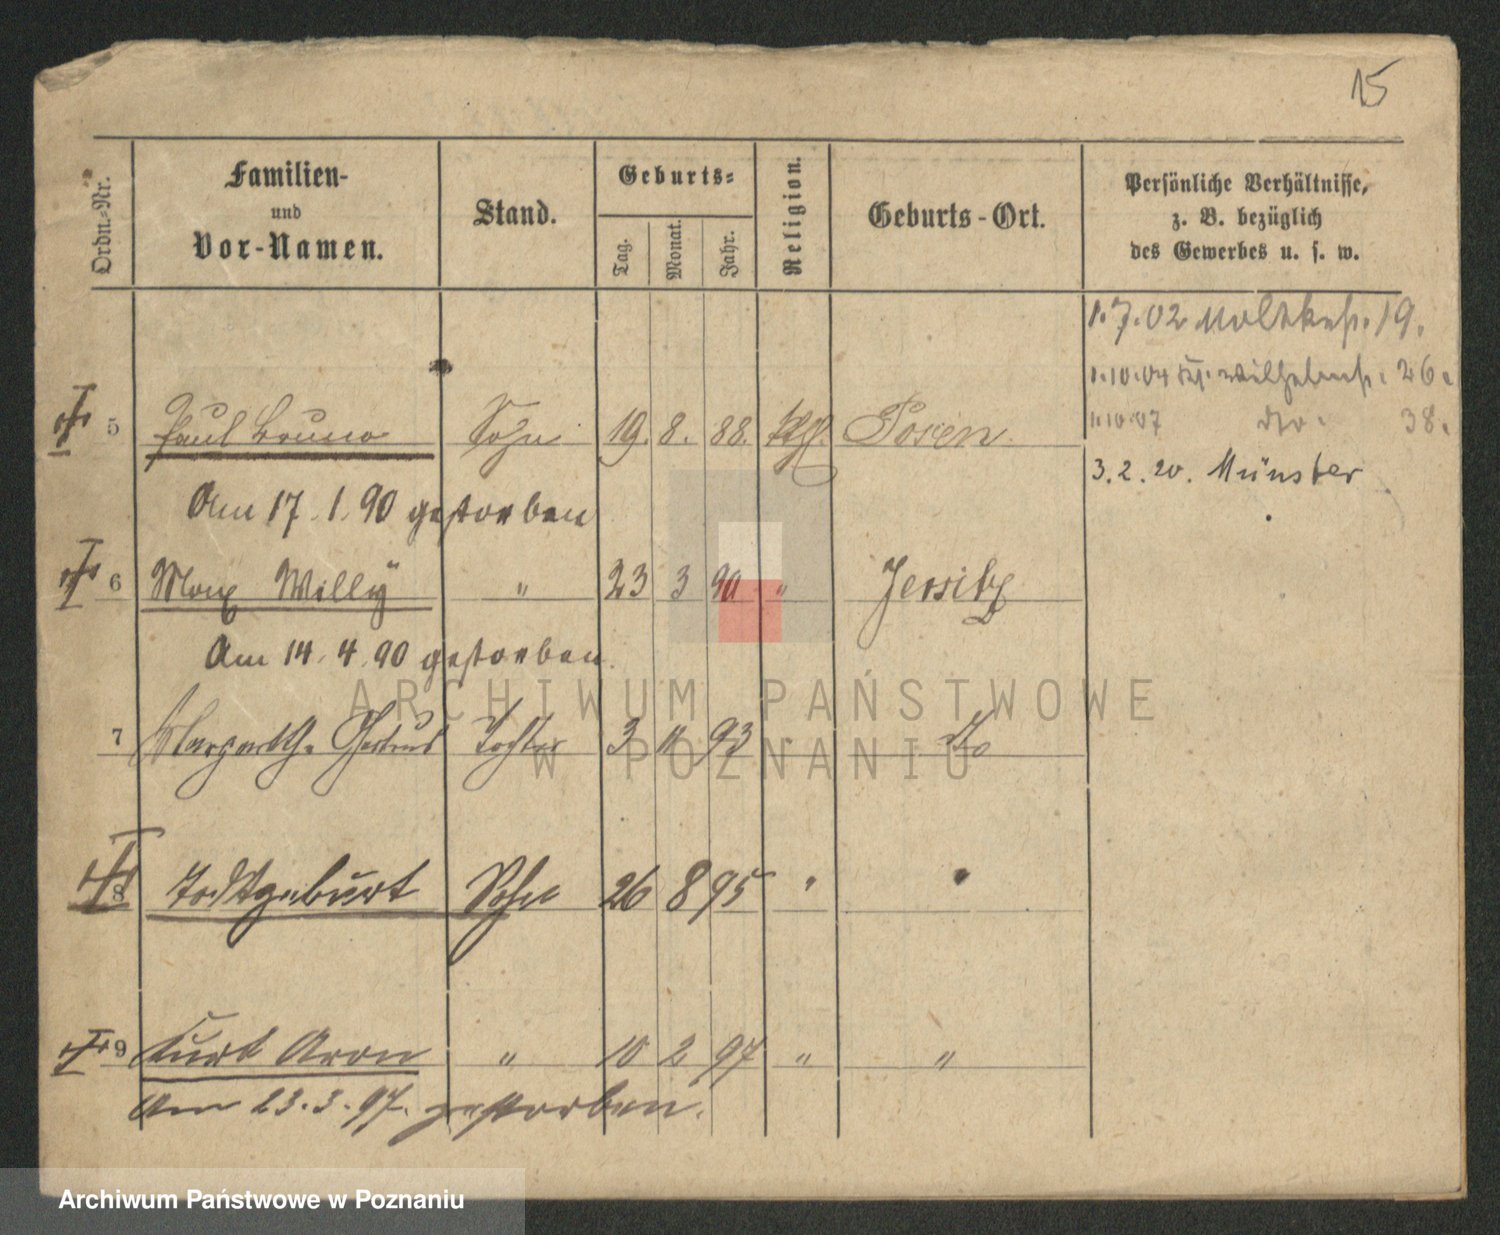 15
Ordn.-Nr.
Familien-
und
Vor-Namen.
Stand.
Geburts-
Tag. Monat. Jahr.
Religion.
Geburts-Ort.
Persönliche Verhältnisse,
z. B. bezüglich
des Gewerbes u. s. w.
1.7.02 Moltkestr. 19.
1.10.04 Wilhelmstr. 26.
1.10.07 dto. 38.
5 Paul Bruno Sohn 19. 8. 88. Posen.
3.2.20. Münster
Am 17.1.90 gestorben
6 Max Willy " 23 3 90 " Jersitz
Am 14.4.90 gestorben.
7 Margarethe Gertrud Tochter 3 11 93 " do
8 Todtgeburt Sohn 26 8 95 " "
9 Kurt Aron " 10 2 97 " "
Am 23.3.97. gestorben.
ARCHIWUM PAŃSTWOWE
W POZNANIU
Archiwum Państwowe w Poznaniu